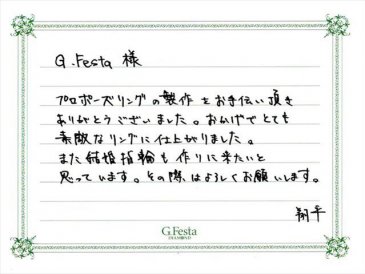 G.Festa 様
プロポーズリングの製作をお手伝い頂き
ありがとうございました。おかげでとても
素敵なリングに仕上がりました。
また結婚指輪も作りに来たいと
思っています。その際はよろしくお願いします。
翔平
G.Festa
DIAMOND